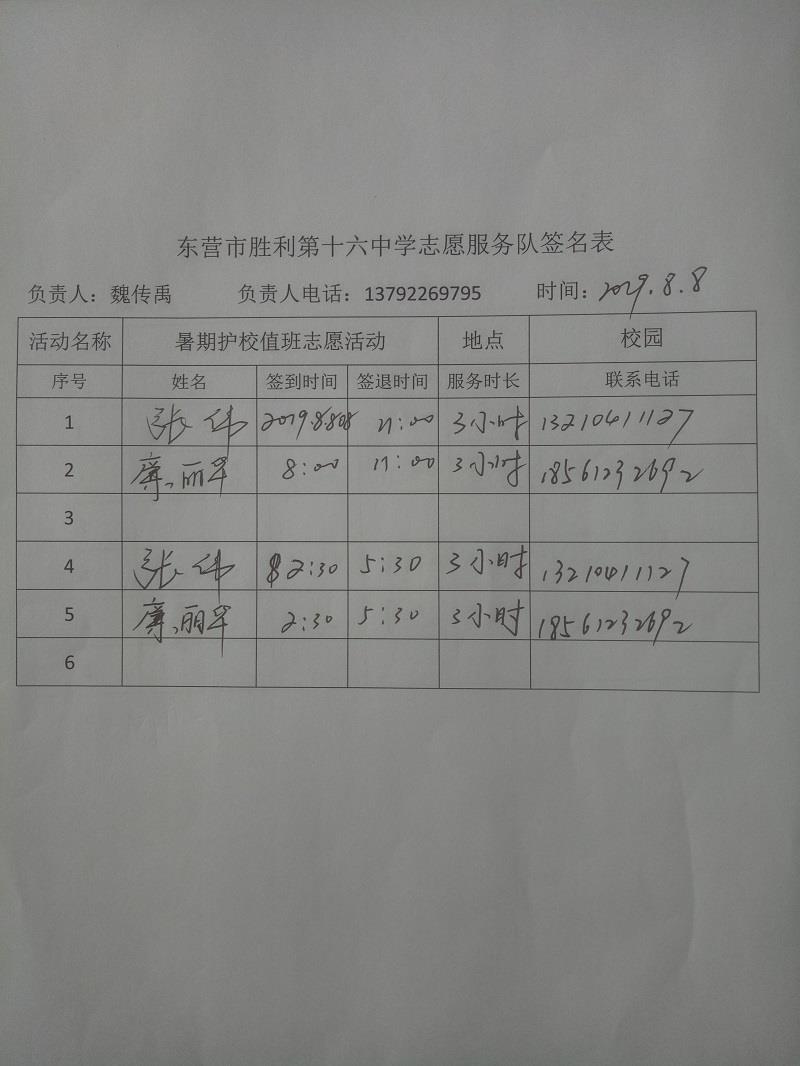 东营市胜利第十六中学志愿服务队签名表
负责人：魏传禹 负责人电话：13792269795 时间：2019.8.8
活动名称 暑期护校值班志愿活动 地点 校园
序号 姓名 签到时间 签退时间 服务时长 联系电话
1 张伟 2019.8.8 11:00 3小时 13210411127
2 丽 8:00 11:00 3小时 18561232692
3
4 张伟 2:30 5:30 3小时 13210411127
5 丽 2:30 5:30 3小时 18561232692
6